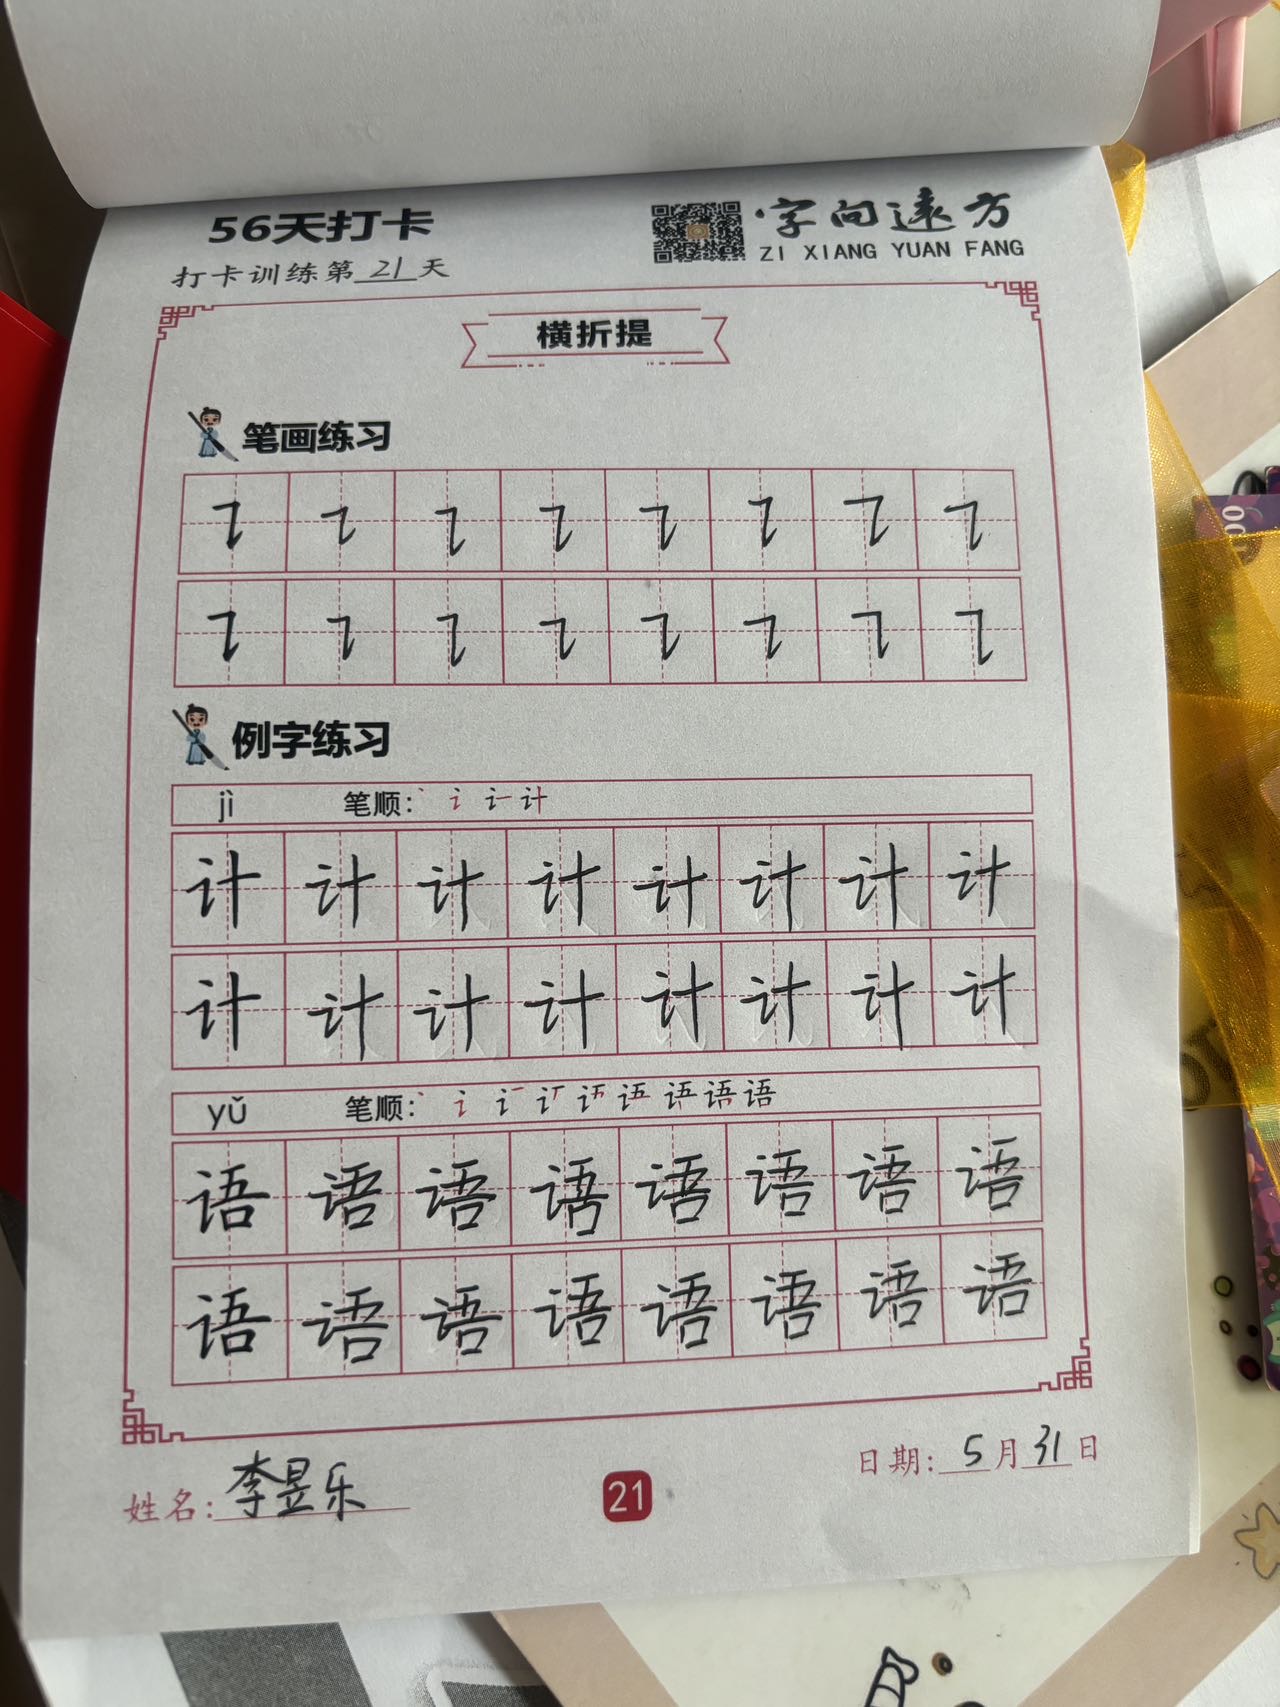 56天打卡
字向远方
ZI XIANG YUAN FANG
打卡训练第21天
横折提
笔画练习
㇊ ㇊ ㇊ ㇊ ㇊ ㇊ ㇊ ㇊
㇊ ㇊ ㇊ ㇊ ㇊ ㇊ ㇊ ㇊
例字练习
jì 笔顺：
计 计 计 计 计 计 计 计
计 计 计 计 计 计 计 计
yǔ 笔顺：
语 语 语 语 语 语 语 语
语 语 语 语 语 语 语 语
姓名：李昱乐
21
日期：5月31日
00